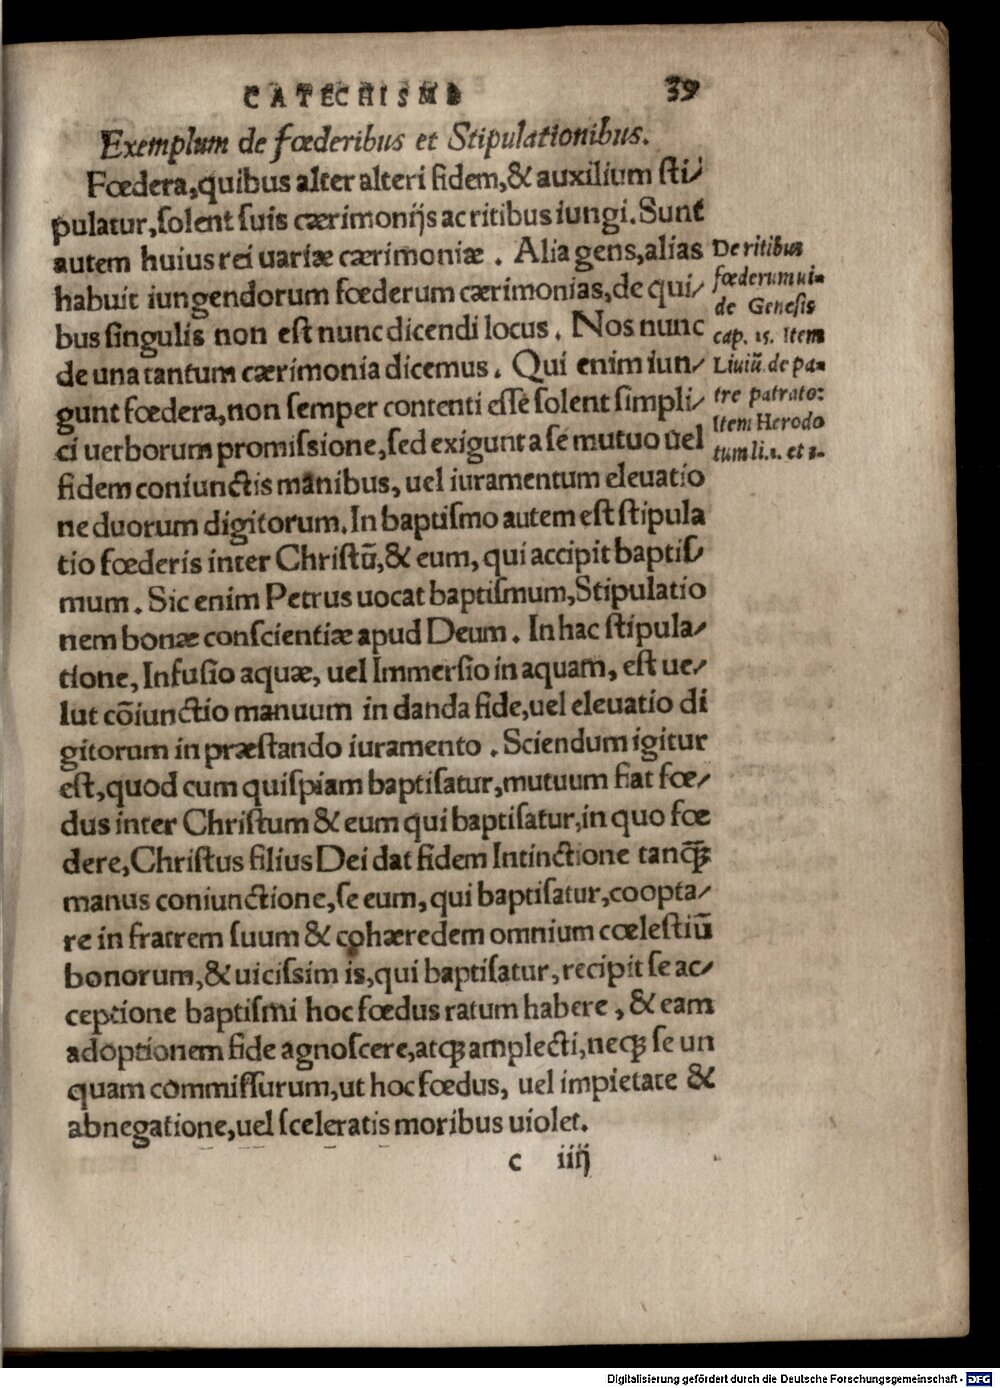 CATECHISMI 39
Exemplum de fœderibus et Stipulationibus.
Fœdera,quibus alter alteri fidem,& auxilium ſti/
pulatur,ſolent ſuis cærimonijs ac ritibus iungi.Sunt
autem huius rei uariæ cærimoniæ . Alia gens,alias
habuit iungendorum fœderum cærimonias,de qui/
bus ſingulis non eſt nunc dicendi locus . Nos nunc
de una tantum cærimonia dicemus . Qui enim iun/
gunt fœdera,non ſemper contenti eſſe ſolent ſimpli/
ci uerborum promiſsione,ſed exigunt a ſe mutuo uel
fidem coniunctis manibus, uel iuramentum eleuatio
ne duorum digitorum.In baptiſmo autem eſt ſtipula
tio fœderis inter Chriſtũ,& eum, qui accipit baptiſ/
mum . Sic enim Petrus uocat baptiſmum,Stipulatio
nem bonæ conſcientiæ apud Deum . In hac ſtipula/
tione, Infuſio aquæ, uel Immerſio in aquam, eſt ue/
lut cõiunctio manuum in danda fide,uel eleuatio di
gitorum in præſtando iuramento . Sciendum igitur
eſt,quod cum quiſpiam baptiſatur,mutuum fiat fœ/
dus inter Chriſtum & eum qui baptiſatur,in quo fœ
dere,Chriſtus filius Dei dat fidem Intinctione tanq̃ꝫ
manus coniunctione,ſe eum, qui baptiſatur,coopta/
re in fratrem ſuum & cohæredem omnium cœleſtiũ
bonorum,& uiciſsim is,qui baptiſatur,recipit ſe ac/
ceptione baptiſmi hoc fœdus ratum habere , & eam
adoptionem fide agnoſcere,atqꝫ amplecti,neqꝫ ſe un
quam commiſſurum,ut hoc fœdus, uel impietate &
abnegatione,uel ſceleratis moribus uiolet.
c iiij
De ritibus
fœderum ui-
de Geneſis
cap. 15. Item
Liuiũ de pa-
tre patrato:
Item Herodo
tum li.1. et 3.
Digitalisierung gefördert durch die Deutsche Forschungsgemeinschaft - DFG